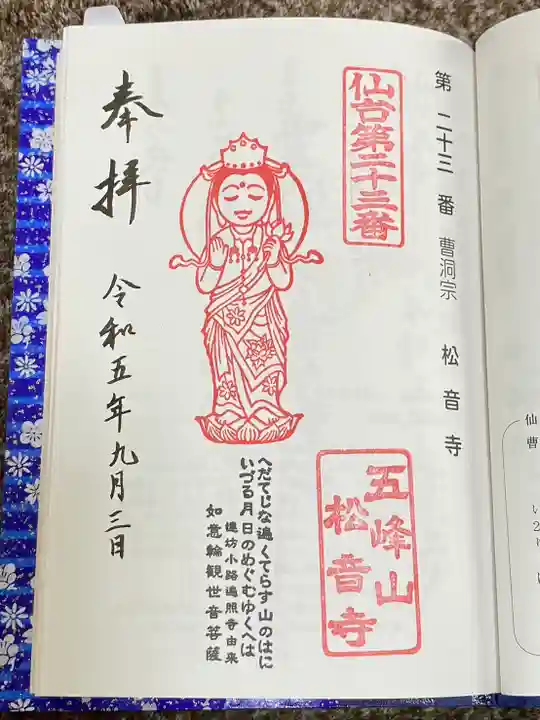 第二十三番 曹洞宗 松音寺
仙台第二十三番
五峰山
松音寺
へだてじな遍くてらす山のはに
いづる月日のめぐむゆくへは
遍坊小路遍照寺由来
如意輪観世音菩薩
奉拝
令和五年九月三日